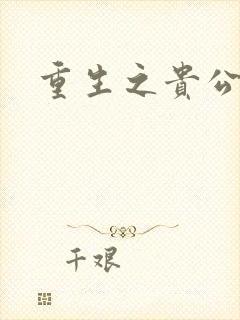 重生之貴公
千艰